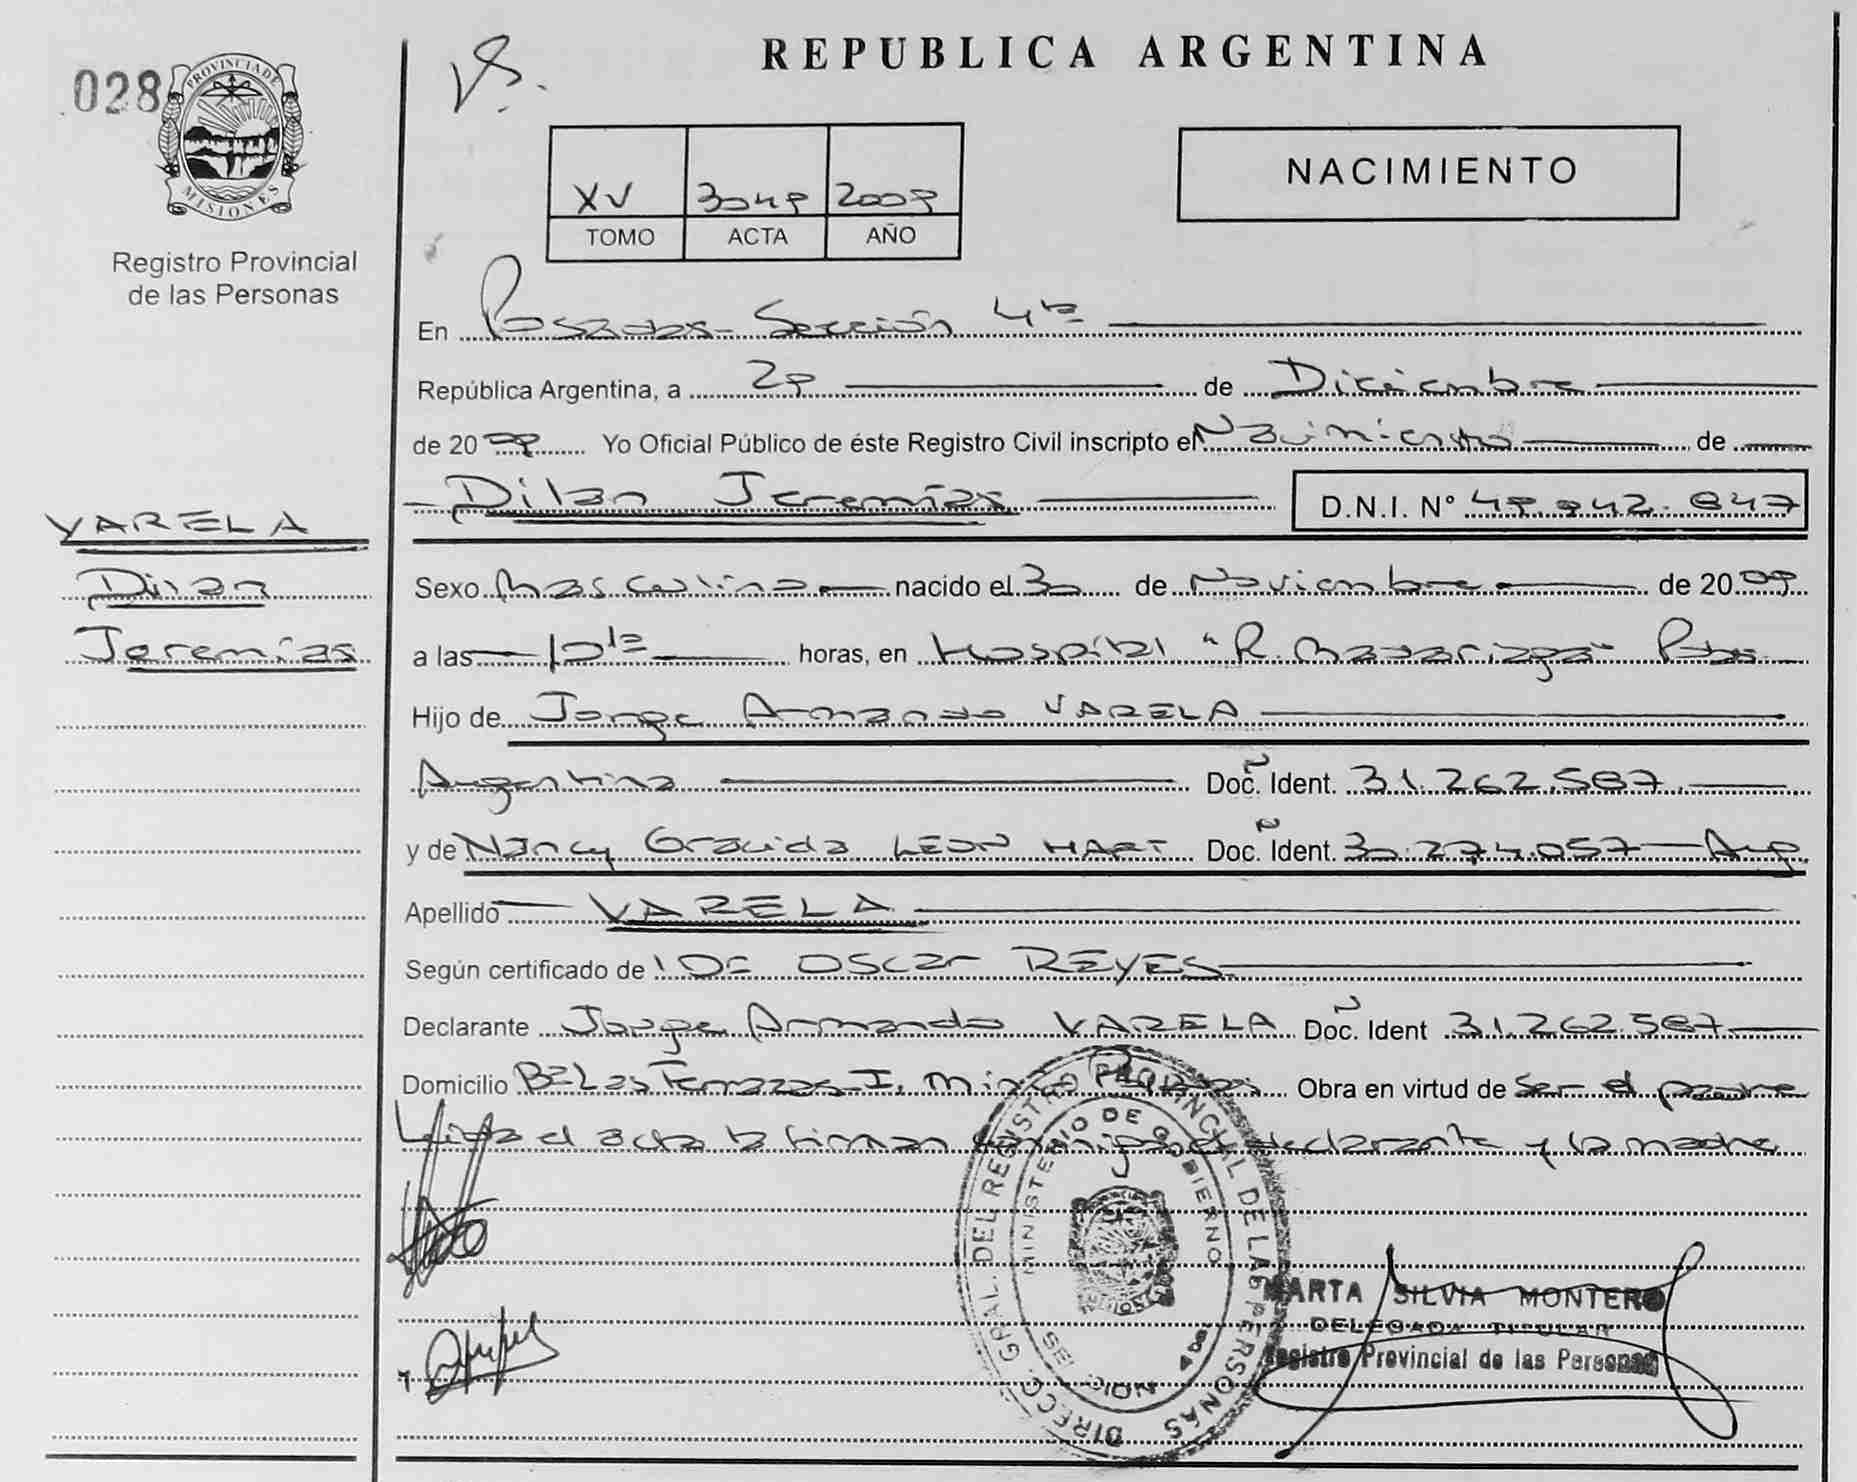 028
PROVINCIA DE
MISIONES
Registro Provincial
de las Personas
VARELA
Dilan
Jeremías
REPUBLICA ARGENTINA
XV 3049 2009
TOMO ACTA AÑO
NACIMIENTO
En Posadas - Sección 4ta
República Argentina, a 29 de Diciembre
de 2009 Yo Oficial Público de éste Registro Civil inscripto el Nacimiento de
Dilan Jeremías D.N.I. Nº 49.942.847
Sexo Masculino nacido el 30 de Noviembre de 2009
a las horas, en Hospital "R. Madariaga" Pdas
Hijo de Jorge Armando VARELA
Argentina Doc. Ident. 31.262.587
y de Nancy Graciela LEON HART Doc. Ident. 30.274.057 Arg.
Apellido VARELA
Según certificado de Oscar REYES
Declarante Jorge Armando VARELA Doc. Ident 31.262.587
Domicilio Obra en virtud de ser el padre
Leída el acta la firman declarante y la madre
DIRECC. GRAL. DEL REGISTRO PROVINCIAL DE LAS PERSONAS
MINISTERIO DE GOBIERNO
MARTA SILVIA MONTERO
DELEGADA TITULAR
Registro Provincial de las Personas